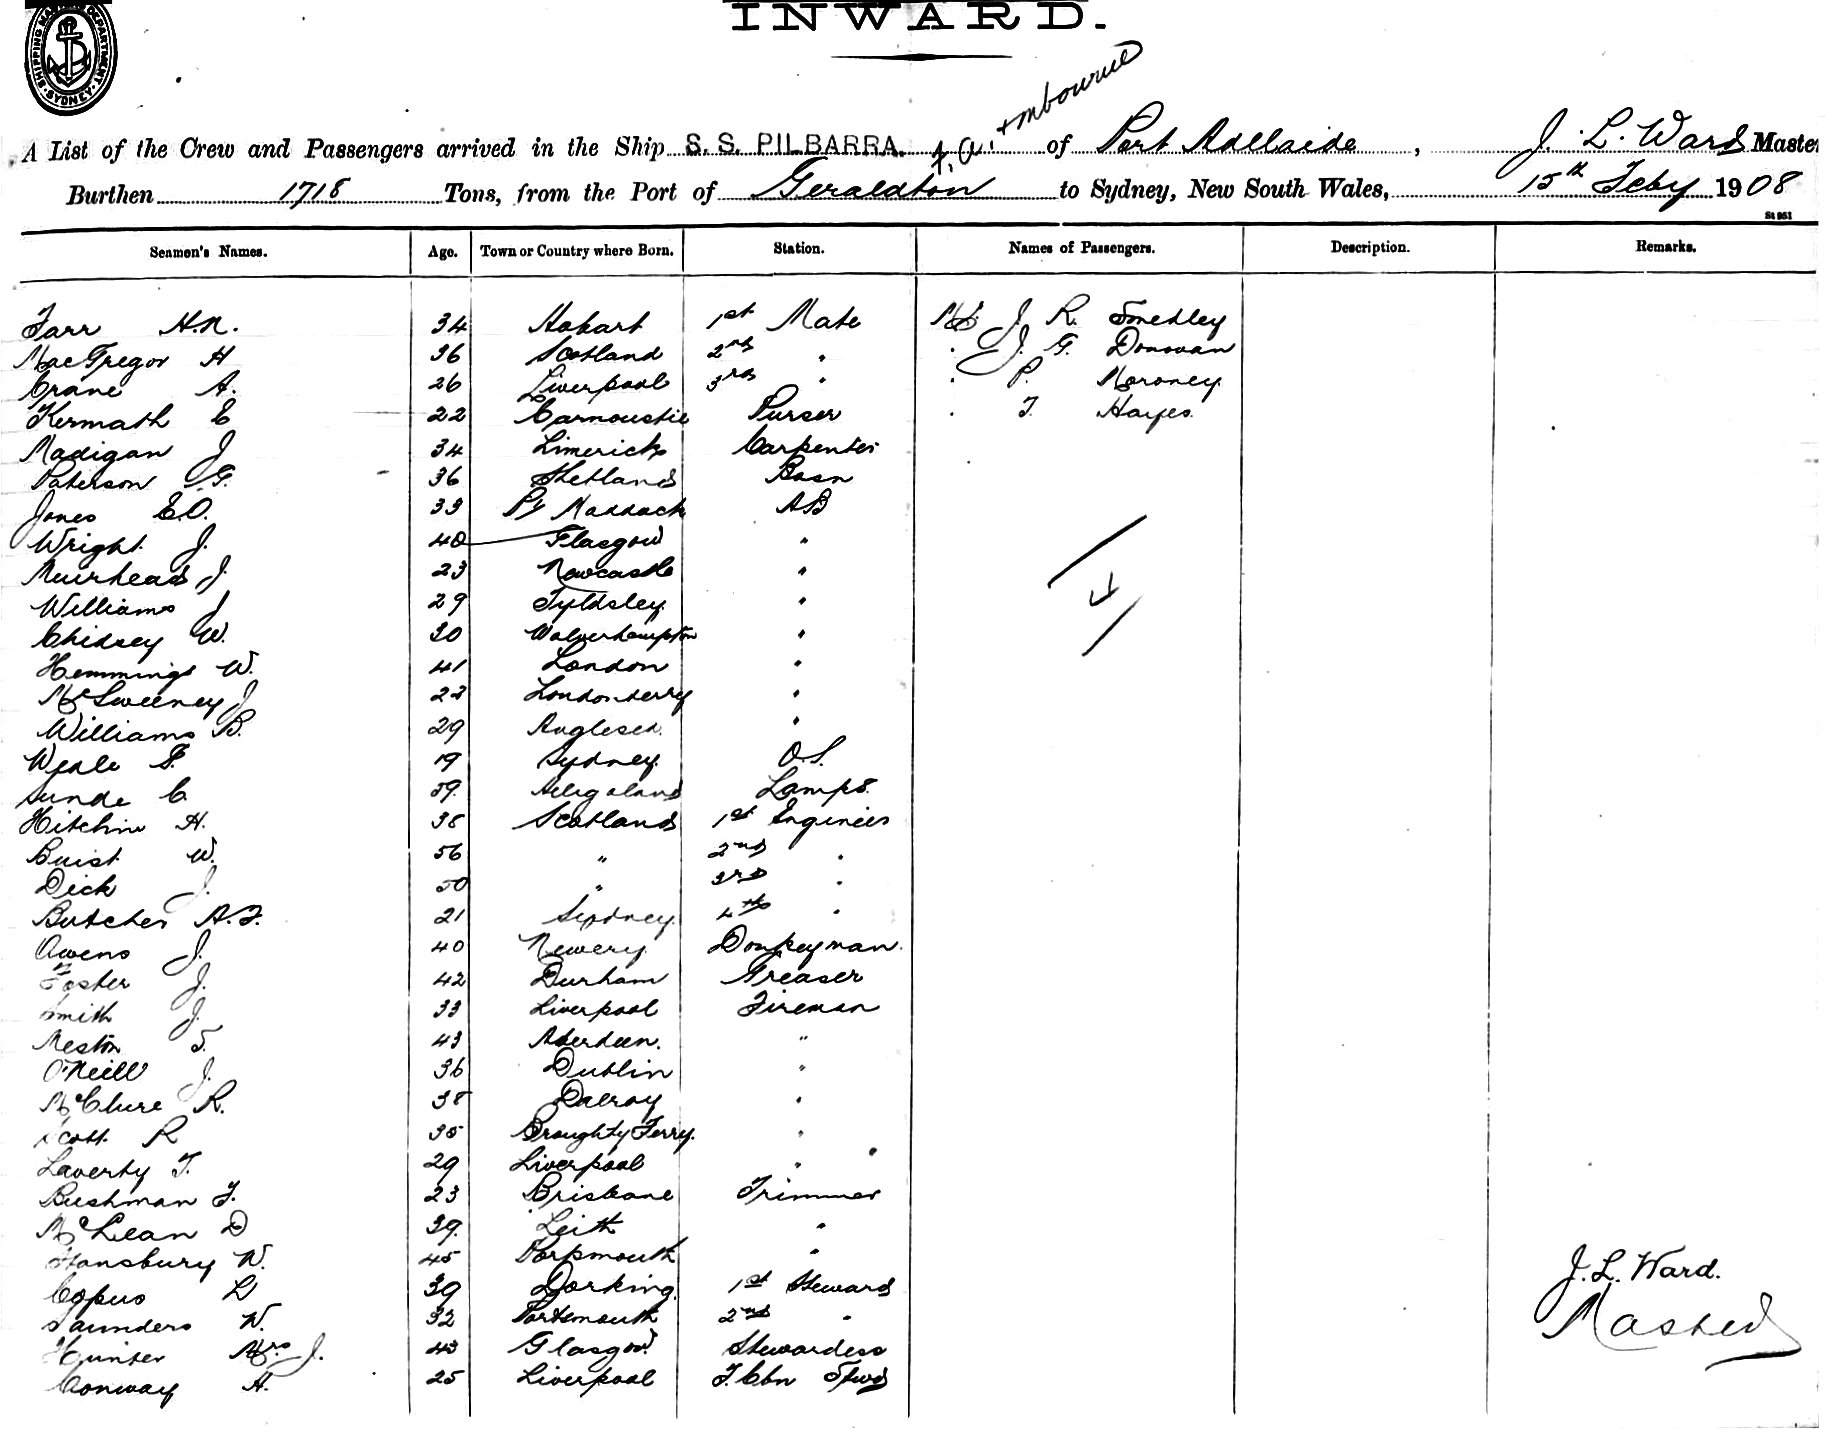 INWARD.
SHIPPING MASTERS DEPARTMENT. SYDNEY.
+ mbourne
A List of the Crew and Passengers arrived in the Ship S. S. PILBARRA. of Port Adelaide, J. L. Ward Master
Burthen 1718 Tons, from the Port of Geraldton to Sydney, New South Wales, 15th Feby 1908
St 951
Seamen's Names. Age. Town or Country where Born. Station. Names of Passengers. Description. Remarks.
Farr H.N. 34 Hobart 1st Mate Mr J. R. Smedley
MacGregor H 36 Scotland 2nd " " J. G. Donovan
Crane A. 26 Liverpool 3rd " " P. Moroney
Kermath E 22 Carnoustie Purser " T. Hayes
Madigan J 34 Limerick Carpenter
Paterson G. 36 Shetland Bosn
Jones E.O. 33 Pt Maddock AB
Wright J. 40 Glasgow "
Muirhead J. 23 Newcastle "
Williams J 29 Tyldsley "
Chidsey W. 30 Wolverhampton "
Hemmings W. 41 London "
McSweeney J 22 Londonderry "
Williams B. 29 Anglesea "
Weale F. 19 Sydney O.S.
Sunde C 59 Heligoland Lamps
Hitchin H. 38 Scotland 1st Engineer
Buist W. 56 " 2nd "
Dick J. 50 " 3rd "
Butcher A.F. 21 Sydney 4th "
Owens J. 40 Newery Donkeyman
Foster J. 42 Durham Greaser
Smith J. 33 Liverpool Fireman
Meston T. 43 Aberdeen. "
O'Neill J. 36 Dublin "
McClure R. 38 Dalroy "
Scott R 35 Broughty Ferry. "
Laverty T. 29 Liverpool "
Bushman F. 23 Brisbane Trimmer
McLean D 39 Leith "
Hansbury W. 45 Portsmouth "
Copus L 39 Dorking 1st Steward
Saunders W. 32 Portsmouth 2nd "
Hunter Mrs J. 43 Glasgow Stewardess
Conway H. 25 Liverpool F. Cbn Stwd
J. L. Ward.
Master